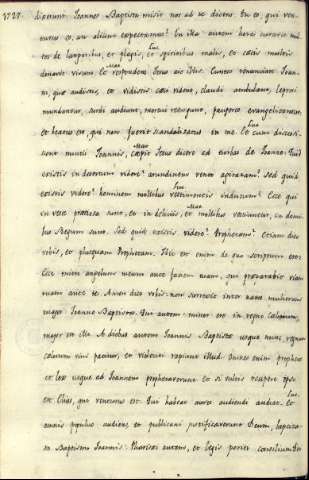 1727. dixerunt Joannes Baptista misit nos ad te dicens. Tu es, qui ven-
turus es, an alium expectamus? In illa autem hora curavit mul-
tos de languoribus, et plagis, et spiritibus malis, et cæcis multis
Luc
donavit visum. Et respondens Jesus ait illis. Euntes renunciate Joan-
Mat
ni, quæ audistis, et vidistis: cæci vident, claudi ambulant, leprosi
mundantur, surdi audiunt, mortui resurgunt, pauperes evangelizantur:
et beatus est, qui non fuerit scandalizatus in me. Et cum discessi-
Luc
sent nuncii Joannis, cæpit Jesus dicere ad turbas de Joanne: Quid
Mat
existis in desertum videre? arundinem vento agitatam? Sed quid
existis videre? hominem mollibus vestimentis indutum? Ecce qui
Luc
in veste pretiosa sunt, et in deliciis, et mollibus vestiuntur, in domi-
Mat
bus Regum sunt. Sed quid existis videre? Prophetam? Etiam dico
vobis, et plusquam Prophetam. Hic est enim de quo scriptum est:
Ecce mitto angelum meum ante faciem tuam, qui præparabit viam
tuam ante te. Amen dico vobis: non surrexit inter natos mulierum
major Joanne Baptista. Qui autem minor est in regno Cælorum,
major est illo. A diebus autem Joannis Baptistæ usque nunc, regnum
cælorum vim patitur, et violenti rapiunt illud. Omnes enim prophetæ
et lex usque ad Joannem prophetaverunt: et si vultis recipere ipse
est Elias, qui venturus est. Qui habet aures audiendi audiat. Et
Luc
omnis populus audiens et publicani justificaverunt Deum, baptiza-
ti Baptismo Joannis: Pharisæi autem, et legis periti consilium Dei